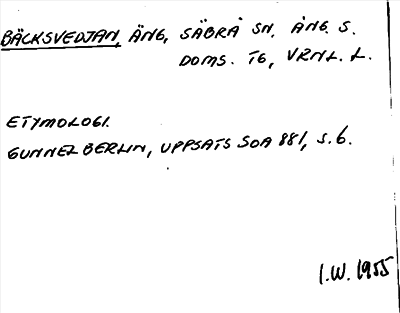 BÄCKSVEDJAN, ÄNG, SÄBRÅ SN, ÅNG. S.
DOMS. TG, VRNL. L.
ETYMOLOGI.
GUNNEL BERLIN, UPPSATS SOA 881, S. 6.
I.W. 1955